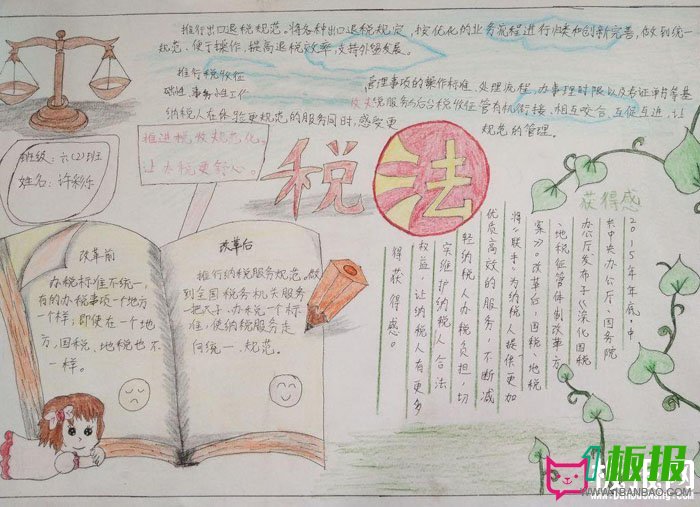 推行出口退税规范。将各种出口退税规定，按优化的业务流程进行归类和创新完善，做到统一
规范、便于操作，提高退税效率，支持外贸发展。
推行税收征
管理事项的操作标准、处理流程、办事理时限以及表证单书等基
础性、事务性工作
纳税人在体验更规范的服务同时，感受更
规范的管理。
推进税收规范化，
让办税更舒心。
班级：六(2)班
姓名：许彩乐
税法
改革前
办税标准不统一，
有的办税事项一个地方
一个样；即使在一个地
方，国税、地税也不
一样。
改革后
推行纳税服务规范，做
到全国税务机关服务
一把尺子、办税一个标
准，使纳税服务走
向统一、规范。
获得感
2015年年底，中
共中央办公厅、国务院
办公厅发布了《深化国税
、地税征管体制改革方
案》。改革后，国税、地税
将“联手”为纳税人提供更加
优质高效的服务，不断减
轻纳税人办税负担，切
实维护纳税人合法
权益，让纳税人有更多
得获得感。
板报
1BANBAO.COM